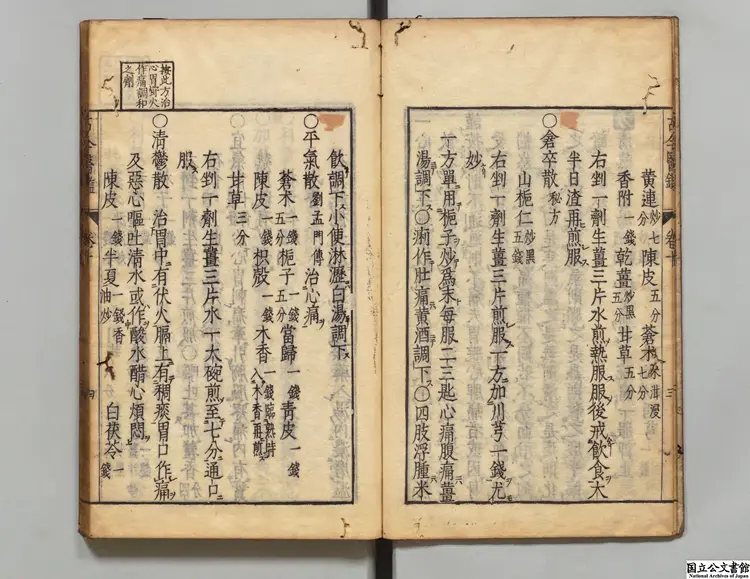 黄連炒七分陳皮五分蒼术米泔浸七分
香附一錢乾薑炒黒五分甘草五分
右剉一劑生薑三片水煎熱服服後戒飲食大
半日渣再煎服
○倉卒散秘方
山梔仁炒黒五錢
右剉一劑生薑三片煎服一方加川芎一錢尤
妙
一方單用梔子炒為末每服二三匙心痛腹痛薑
湯調下○痢作肚痛黄酒調下○四肢浮腫米
飲調下小便淋瀝白湯調下
○平氣散劉孟門傳治心痛
蒼术一錢五分梔子一錢五分當歸一錢青皮一錢
陳皮一錢枳殻一錢木香一錢臨熟時入木香再煎
甘草三分
右剉一劑生薑三片水一大碗煎至七分通口
服
○清鬱散治胃中有伏火膈上有稠痰胃口作痛
及惡心嘔吐清水或作酸水醋心煩悶
陳皮一錢半夏一錢香油炒白茯苓一錢
按此方治
心胃鬱火
作痛調和
之劑
古今醫鑑
卷十
國立公文書館
National Archives of Japan